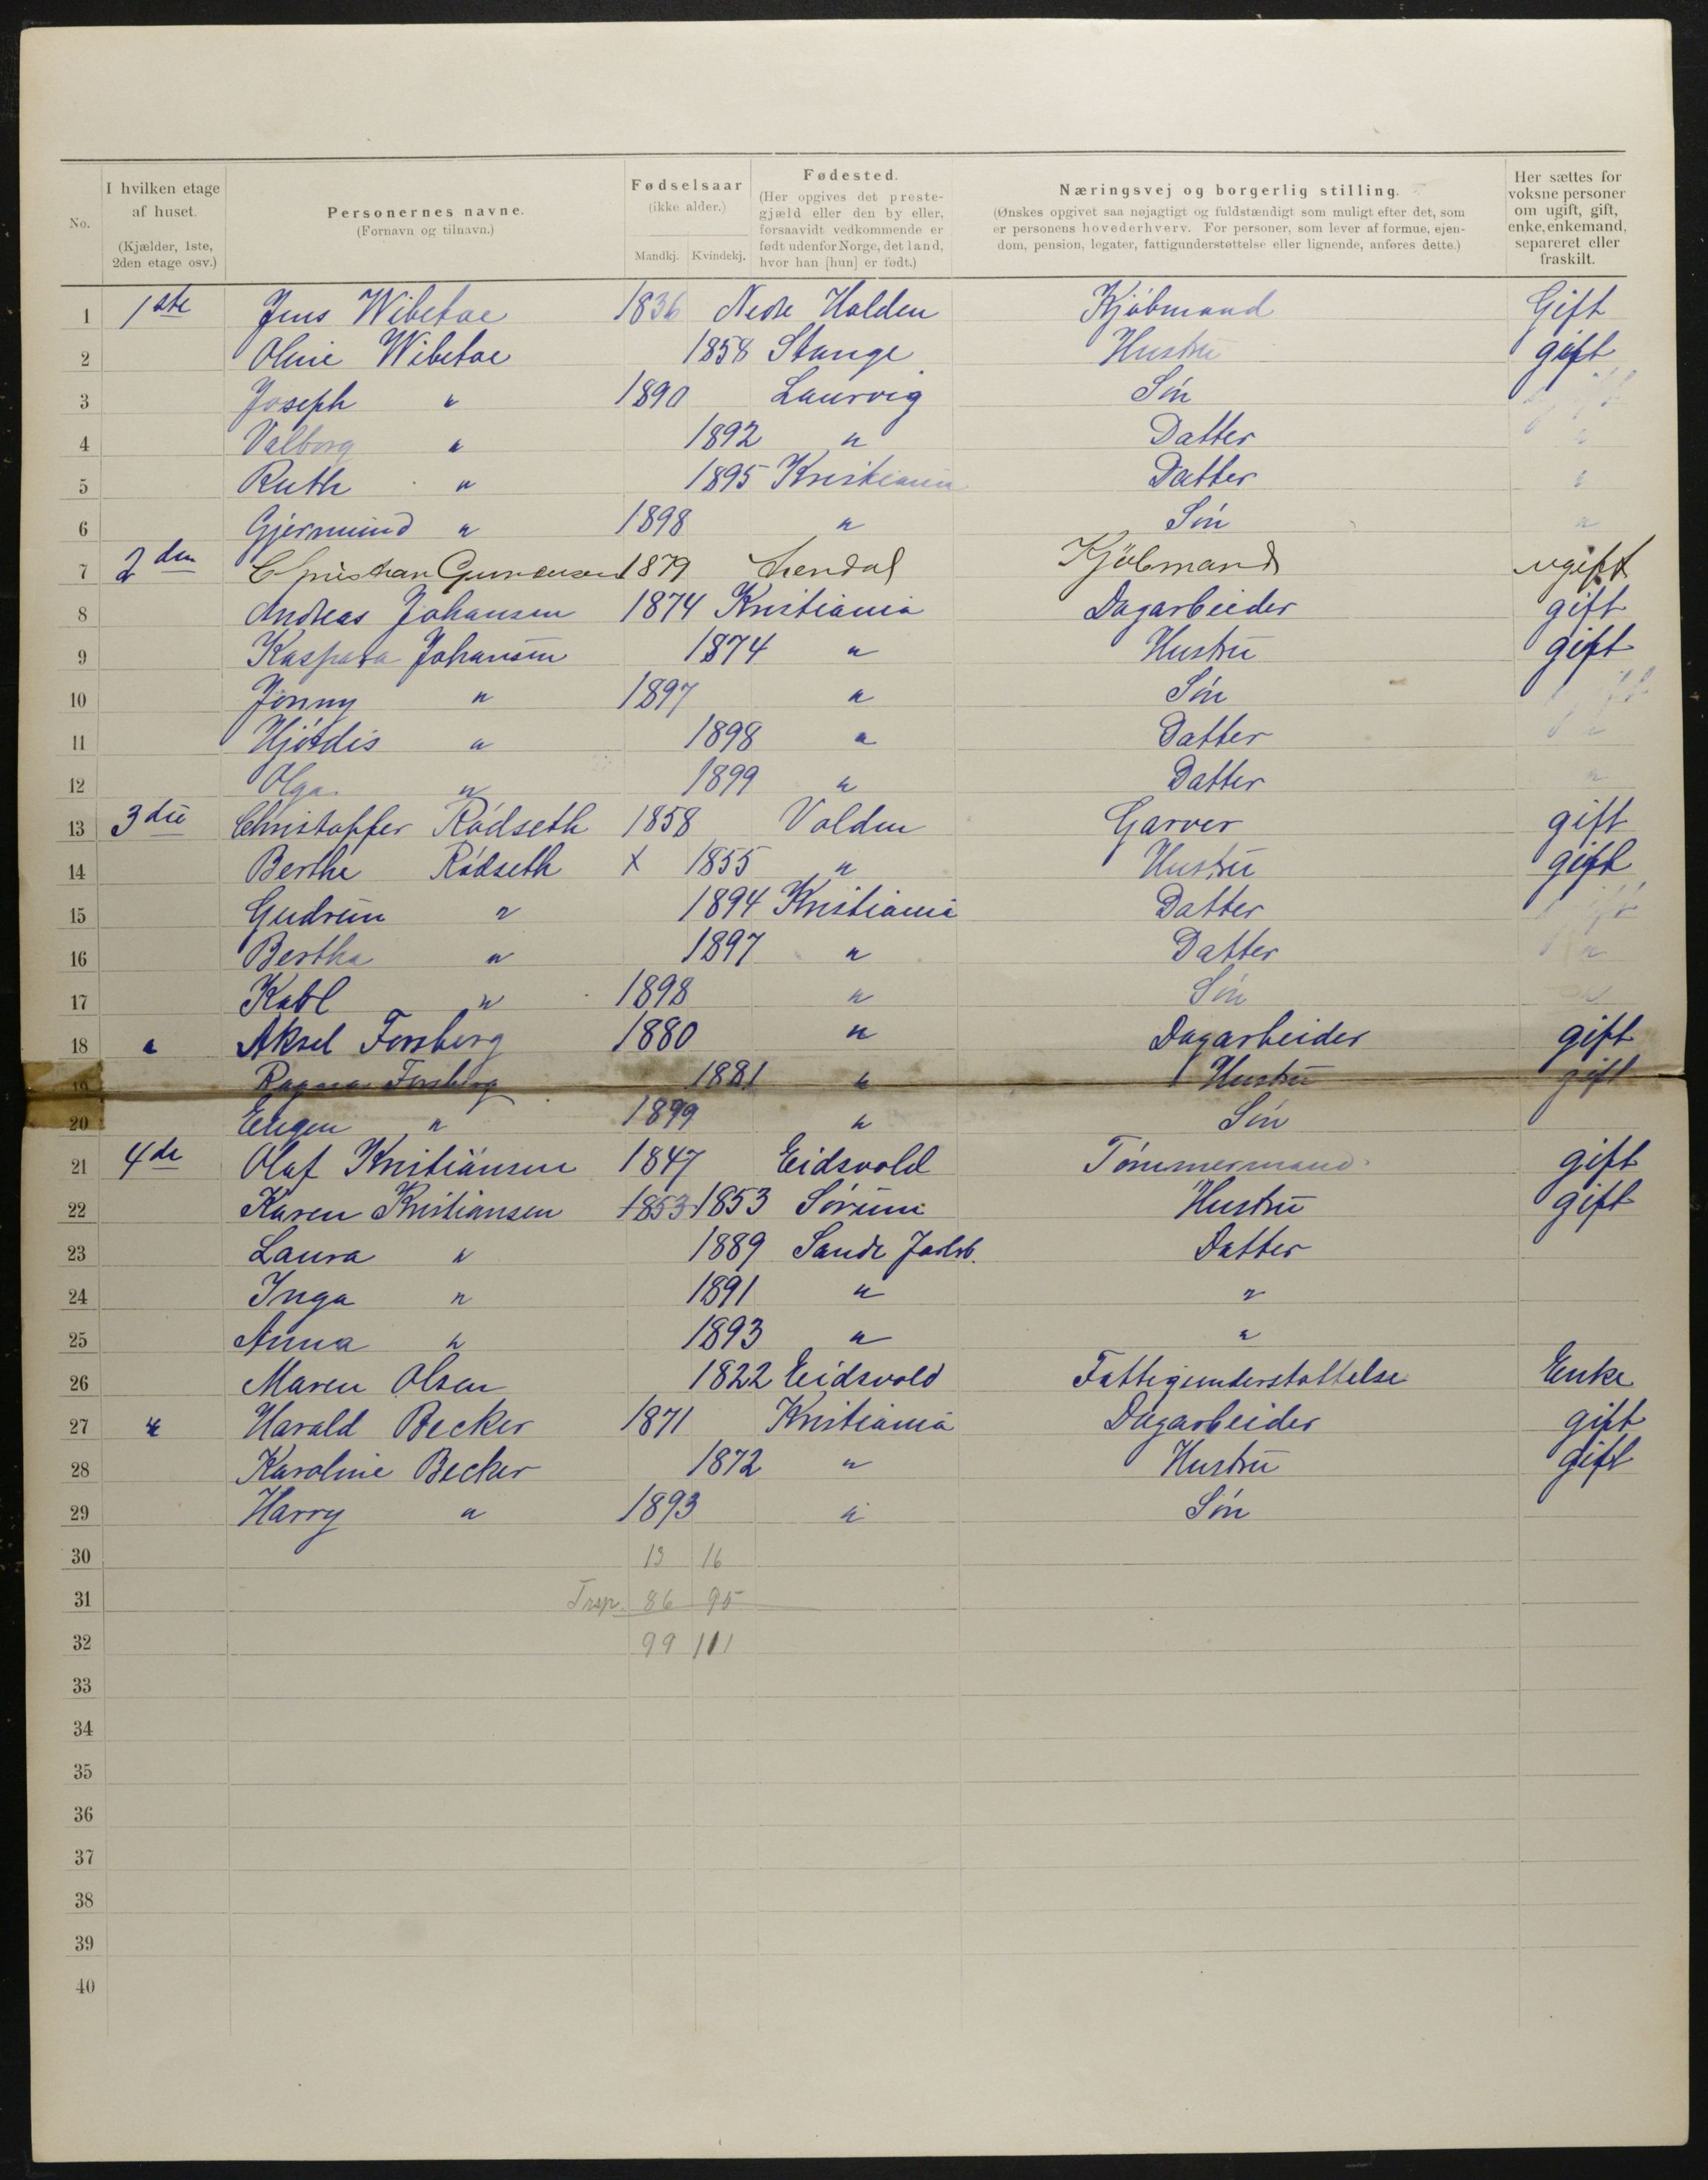 No.
I hvilken etage af huset.
(Kjælder, 1ste, 2den etage osv.)
Personernes navne.
(Fornavn og tilnavn.)
Fødselsaar
(ikke alder.)
Mandkj. Kvindekj.
Fødested.
(Her opgives det preste-
gjæld eller den by eller,
forsaavidt vedkommende er
født udenfor Norge, det land,
hvor han [hun] er født.)
Næringsvej og borgerlig stilling.
(Ønskes opgivet saa nøjagtigt og fuldstændigt som muligt efter det, som
er personens hovederhverv. For personer, som lever af formue, ejen-
dom, pension, legater, fattigunderstøttelse eller lignende, anføres dette.)
Her sættes for
voksne personer
om ugift, gift,
enke, enkemand,
separeret eller
fraskilt.
1 1ste Jens Wibetoe 1836 Nedre Halden Kjøbmand Gift
2 Oline Wibetoe 1858 Stange Hustru gift
3 Joseph " 1890 Laurvig Søn
4 Valborg " 1892 " Datter "
5 Ruth " 1895 Kristiania Datter "
6 Gjermund " 1898 " Søn "
7 2den Christian 1879 Kjøbmand ugift
8 Andreas Johansen 1874 Kristiania Dagarbeider gift
9 Kaspara Johansen 1874 " Hustru gift
10 Jonny " 1897 " Søn
11 Hjørdis " 1898 " Datter "
12 Olga " 1899 " Datter "
13 3die Christoffer Rødseth 1858 Volden Garver gift
14 Berthe Rødseth x 1855 " Hustru gift
15 Gudrun " 1894 Kristiania Datter
16 Bertha " 1897 " Datter "
17 Karl " 1898 " Søn
18 " Aksel Forsberg 1880 " Dagarbeider gift
19 Ragna Forsberg 1881 " Hustru gift
20 Eugen " 1899 " Søn
21 4de Olaf Kristiansen 1847 Eidsvold Tømmermand gift
22 Karen Kristiansen 1853 1853 Sørum Hustru gift
23 Laura " 1889 Sande Jarlsb. Datter
24 Inga " 1891 " "
25 Anna " 1893 " "
26 Maren Olsen 1822 Eidsvold Fattigunderstøttelse Enke
27 " Harald Becker 1871 Kristiania Dagarbeider gift
28 Karoline Becker 1872 " Hustru gift
29 Harry " 1893 " Søn
30 13 16
31 Trsp. 86 95
32 99 111
33
34
35
36
37
38
39
40